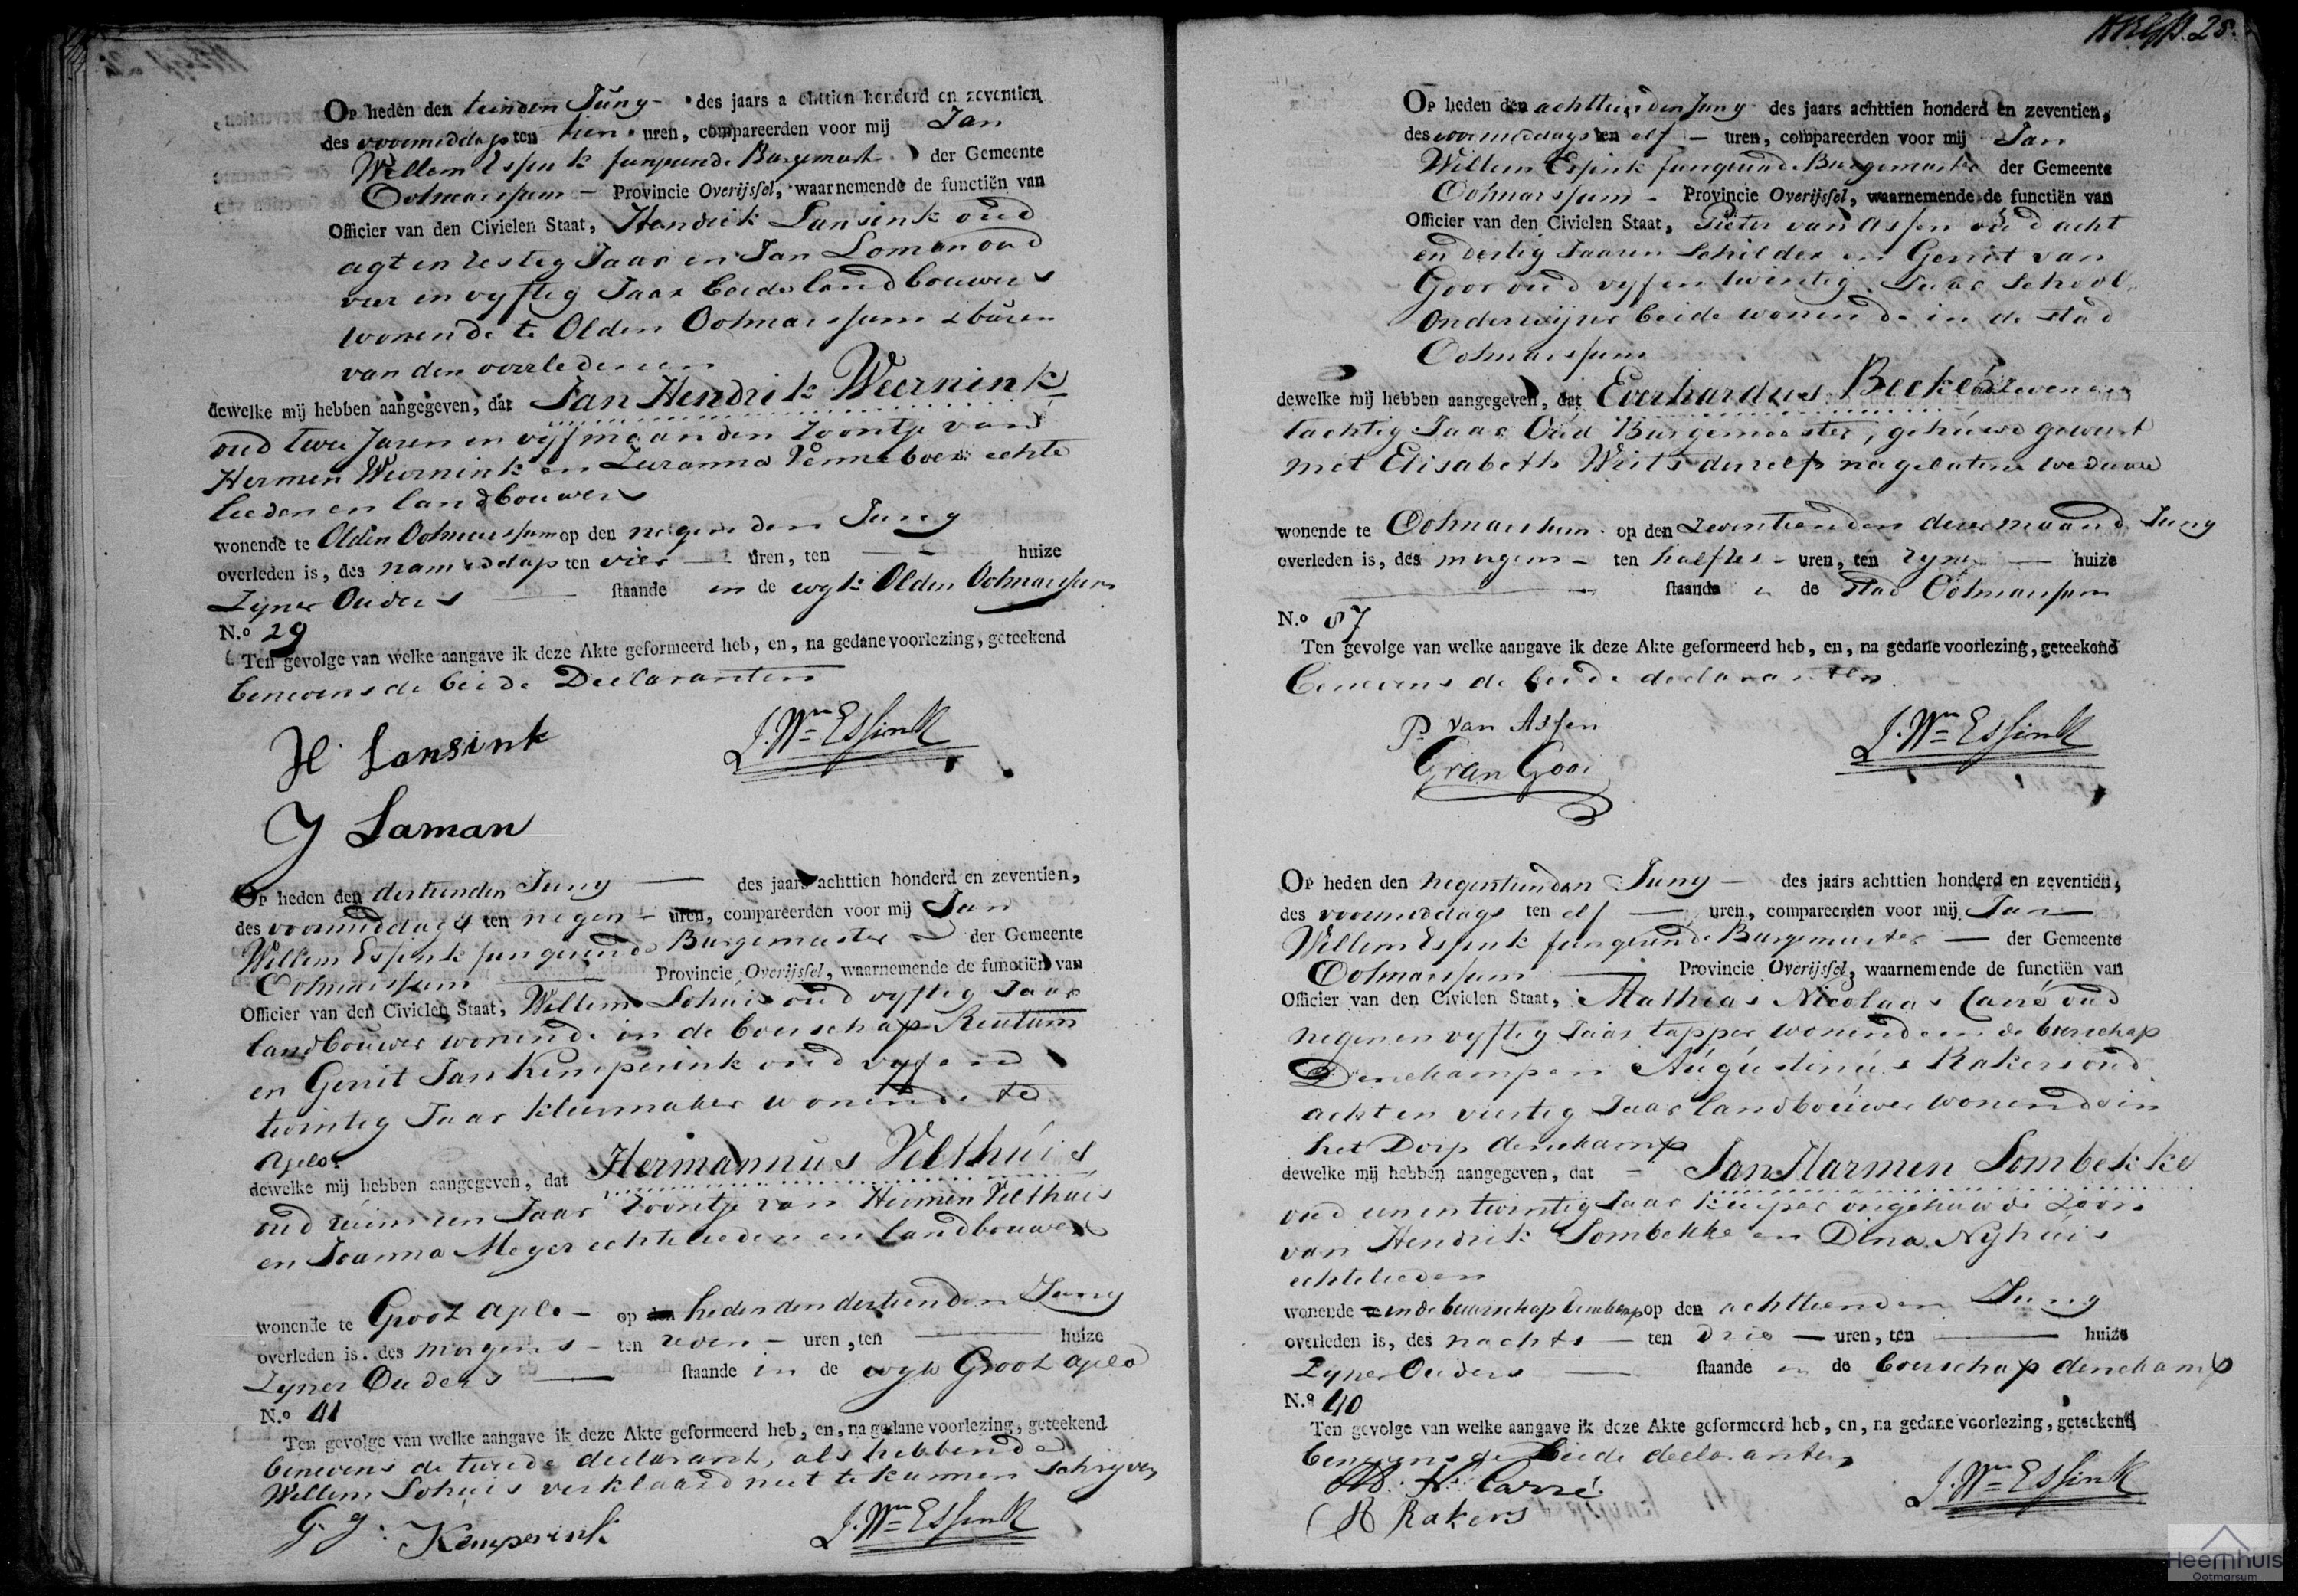 Op heden den tienden Juny - des jaars achttien honderd en zeventien
des voormiddags ten tien uren, compareerden voor mij Jan
Willem Essink fungerende Burgemeester der Gemeente
Ootmarssum - Provincie Overijssel, waarnemende de functiën van
Officier van den Civielen Staat, Hendrik Lansink oud
agt en zestig Jaar en Jan Loman oud
vier en vyftig Jaar beide landbouwers
wonende te Olden Ootmarssum buren
van den overledenen
dewelke mij hebben aangegeven, dat Jan Hendrik Weernink
oud twee Jaren en vyf maanden zoontje van
Hermen Weernink en Zuzanna Venneboer echte
lieden en landbouwers
wonende te Olden Ootmarssum op den negenden Juny
overleden is, des namiddags ten vier - uren, ten - huize
Zyner Ouders - staande in de wyk Olden Ootmarssum
N.o 29
Ten gevolge van welke aangave ik deze Akte geformeerd heb, en, na gedane voorlezing, geteekend
benevens de beide Declaranten
H. Lansink
J. Wm Essink
J Laman
Op heden den dertienden Juny - des jaars achttien honderd en zeventien,
des voormiddags ten negen - uren, compareerden voor mij Jan
Willem Essink fungerende Burgemeester - der Gemeente
Ootmarssum - Provincie Overijssel, waarnemende de functiën van
Officier van den Civielen Staat, Willem Lohuis oud vyftig Jaar
landbouwer wonende in de bourschap Reutum
en Gerrit Jan Kemperink oud vyf en
twintig Jaar kleermaker wonende te
Agelo
dewelke mij hebben aangegeven, dat Hermannus Velthuis
oud ruim een Jaar zoontje van Hermen Velthuis
en Joanna Meyer echtelieden en landbouwers
wonende te Groot Agelo - op den heden den dertienden Juny
overleden is, des morgens - ten zeven - uren, ten - huize
Zyner Ouders - staande in de wyk Groot Agelo
N.o 41
Ten gevolge van welke aangave ik deze Akte geformeerd heb, en, na gedane voorlezing, geteekend
benevens de tweede declarant, als hebbende
Willem Lohuis verklaard niet te kunnen schryven
G. J. Kemperink
J. Wm Essink
25.
Op heden den achttienden Juny des jaars achttien honderd en zeventien,
des voormiddags ten elf - uren, compareerden voor mij Jan
Willem Essink fungerende Burgemeester der Gemeente
Ootmarssum - Provincie Overijssel, waarnemende de functiën van
Officier van den Civielen Staat, Pieter van Assen oud acht
en dertig Jaaren Schilder en Gerrit van
Goor oud vyf en twintig Jaar School
Onderwijzer beide wonende in de stad
Ootmarssum
dewelke mij hebben aangegeven, dat Everhardus Becker oud zeven en
tachtig Jaar Oud Burgemeester, gehuwd geweest
met Elisabeth Weits deszelfs nagelatene weduwe
wonende te Ootmarssum op den zeventienden dezer maand Juny
overleden is, des morgens - ten half zes - uren, ten zyne - huize
- staande in de stad Ootmarssum
N.o 87
Ten gevolge van welke aangave ik deze Akte geformeerd heb, en, na gedane voorlezing, geteekend
benevens de beide declaranten
P. van Assen
J. Wm Essink
G van Goor
Op heden den negentienden Juny - des jaars achttien honderd en zeventien,
des voormiddags ten elf - uren, compareerden voor mij Jan
Willem Essink fungerende Burgemeester - der Gemeente
Ootmarssum - Provincie Overijssel, waarnemende de functiën van
Officier van den Civielen Staat, Mathias Nicolaas Carré oud
negen en vyftig Jaar tapper wonende in de boerschap
Denekamp en Augustinus Rakers oud
acht en veertig Jaar landbouwer wonende in
het Dorp denekamp
dewelke mij hebben aangegeven, dat = Jan Harmen Lombekke
oud een en twintig Jaar kuiper ongehuwde zoon
van Hendrik Lombekke en Dina Nyhuis
echtelieden
wonende in de buurschap denekamp op den achttienden Juny
overleden is, des nachts - ten drie - uren, ten - huize
Zyner Ouders - staande in de bourschap denekamp
N.o 40
Ten gevolge van welke aangave ik deze Akte geformeerd heb, en, na gedane voorlezing, geteekend
benevens de beide declaranten
M. N. Carré
J. Wm Essink
A Rakers
Heemhuis
Ootmarsum